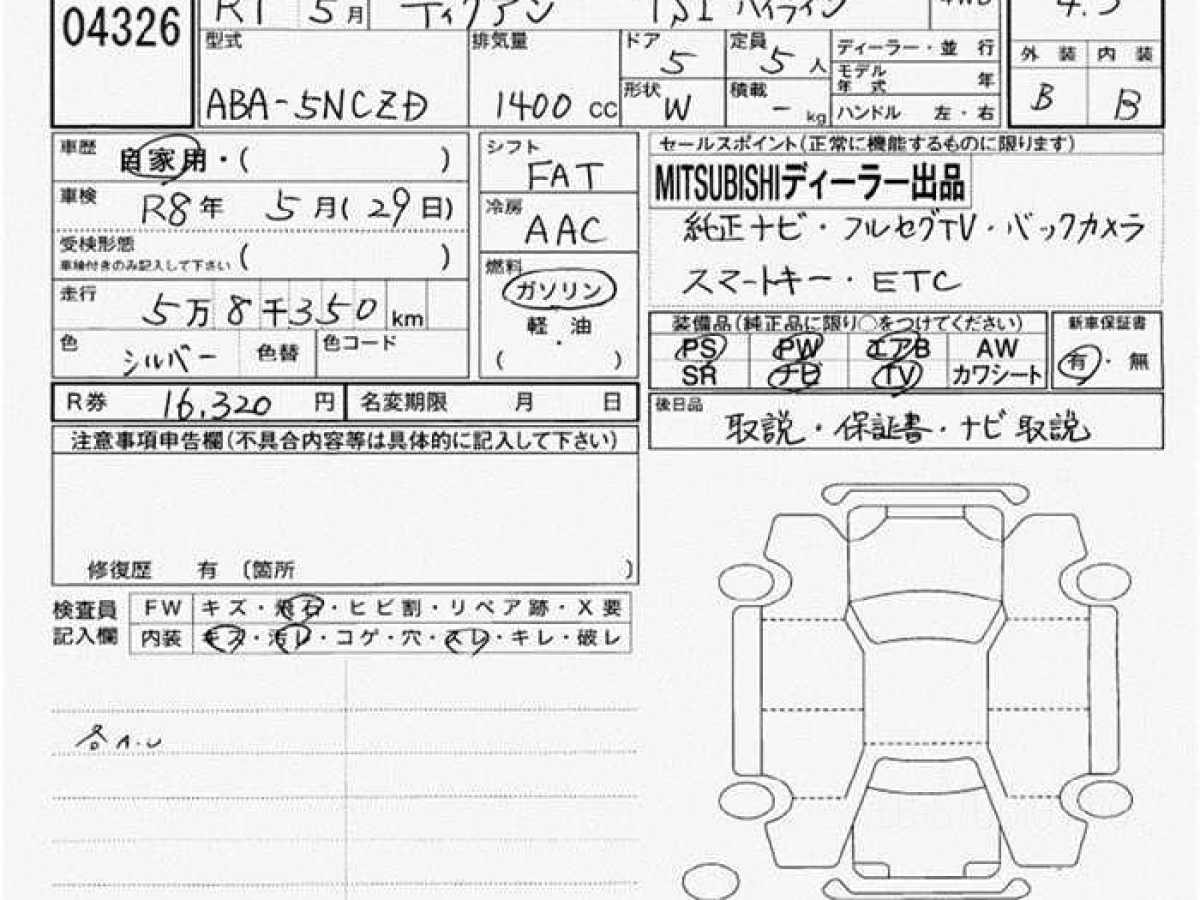 04326 R1 5月 ティグアン TSI ハイライン 4WD 4.5
型式 排気量 ドア 5 定員 5人 ディーラー・並行 外装 内装
モデル年式 年
ABA-5NCZD 1400 cc 形状 W 積載 - kg ハンドル 左・右 B B
車歴 自家用・( )
車検 R8年 5月(29日)
受検形態 ( )
車検付きのみ記入して下さい
走行 5万8千350km
色 シルバー 色替 色コード
シフト FAT
冷房 AAC
燃料
ガソリン
軽・油
( )
セールスポイント(正常に機能するものに限ります)
MITSUBISHIディーラー出品
純正ナビ・フルセグTV・バックカメラ
スマートキー・ETC
装備品(純正品に限り○をつけてください) 新車保証書
PS PW エアB AW 有・無
SR ナビ TV カワシート
R券 16,320円 名変期限 月 日
後日品 取説・保証書・ナビ取説
注意事項申告欄(不具合内容等は具体的に記入して下さい)
修復歴 有 〔箇所 〕
検査員 FW キズ・飛石・ヒビ割・リペア跡・X要
記入欄 内装 キズ・汚レ・コゲ・穴・スレ・キレ・破レ
各A.U